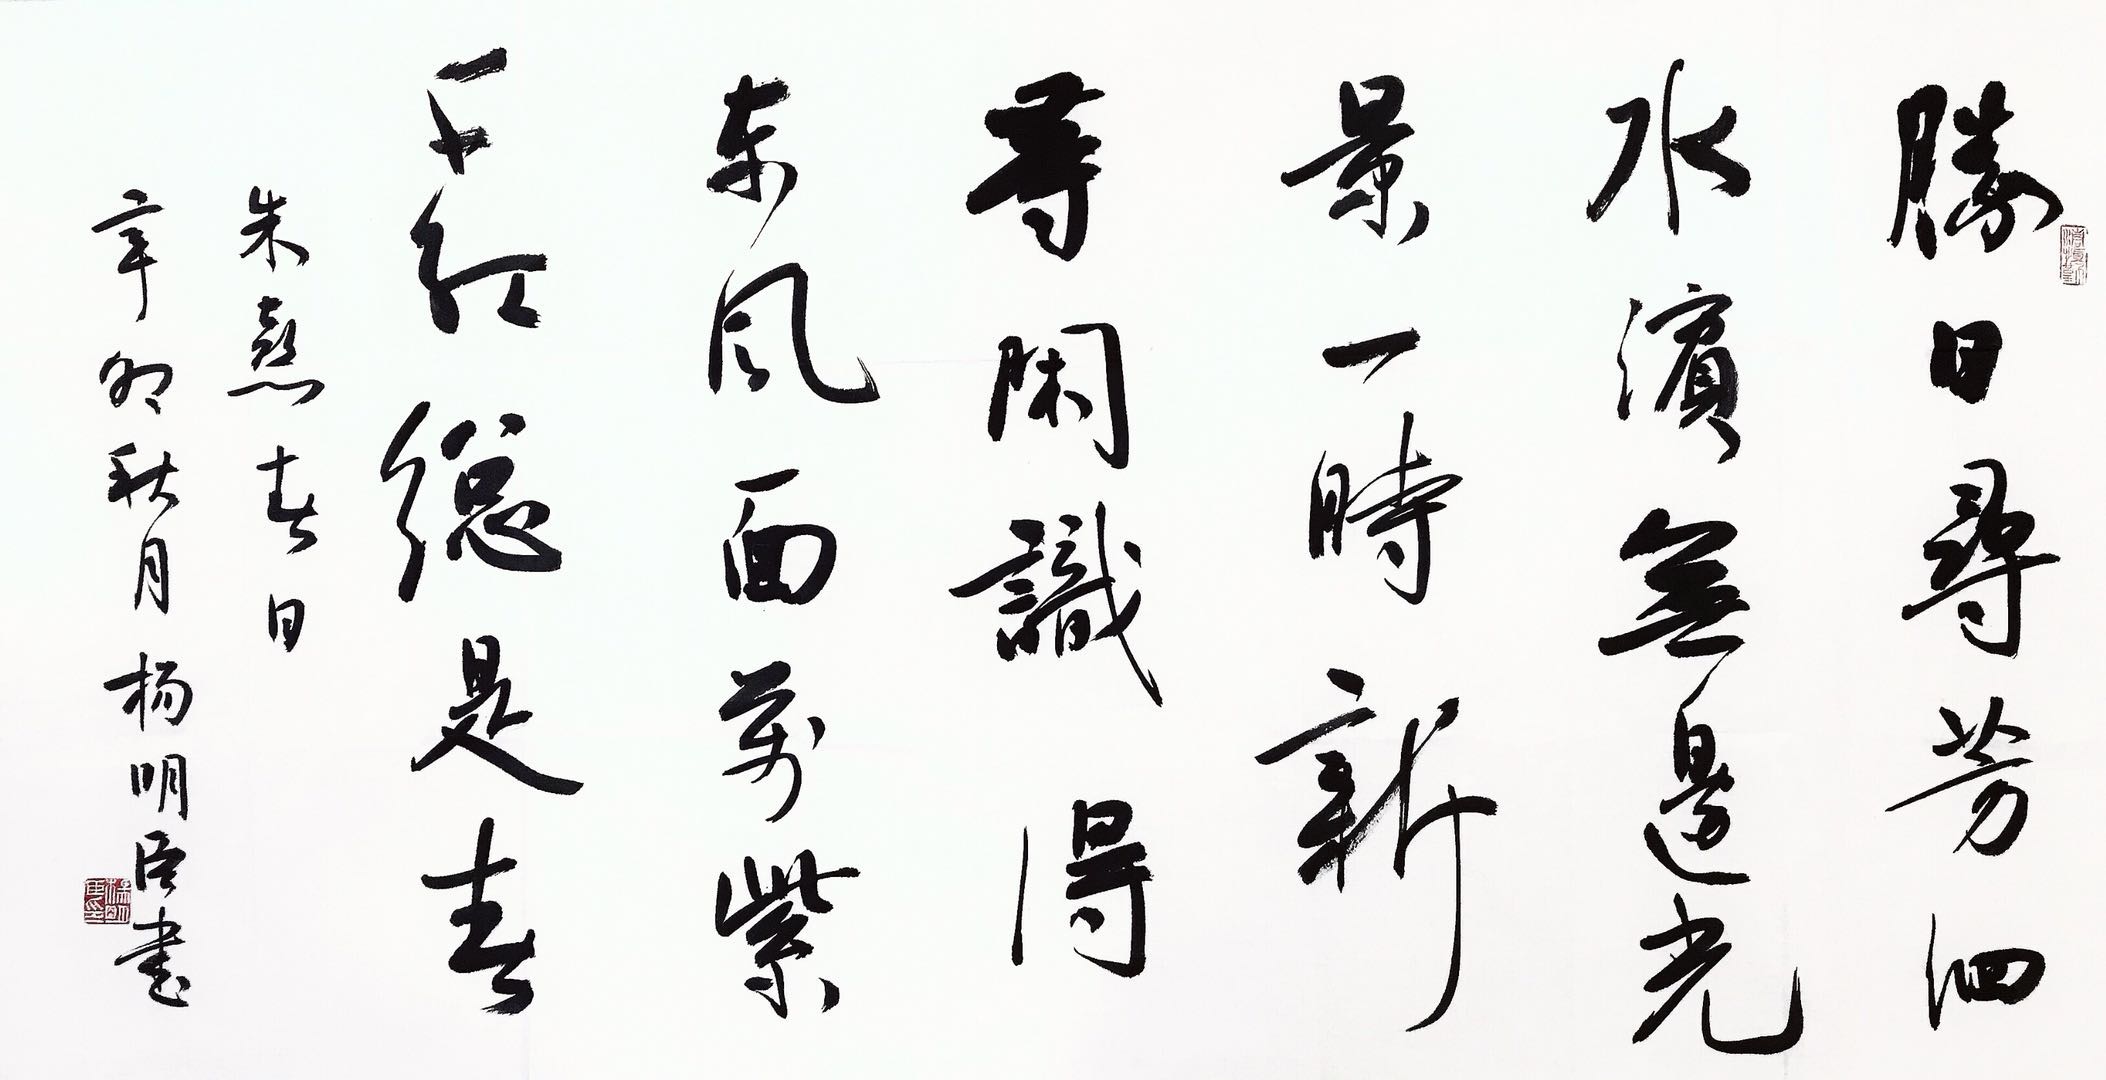 勝日尋芳泗
水濱無邊光
景一時新
等閑識得
東風面萬紫
千紅總是春
朱熹春日
辛卯秋月楊明臣書